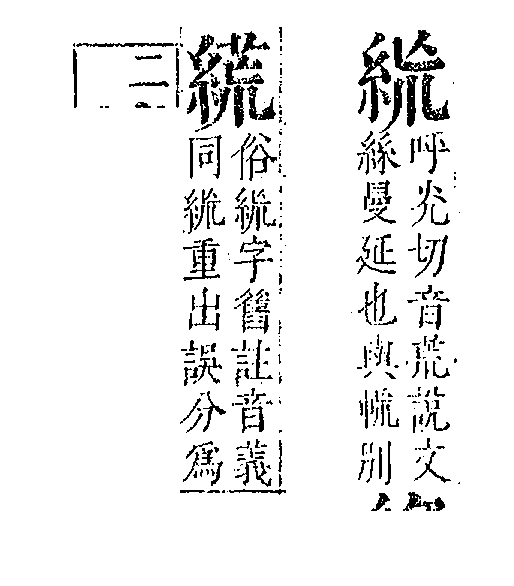 呼光切音巟說文
絲曼延也與㡆別
俗字舊註音義
同重出誤分爲
二